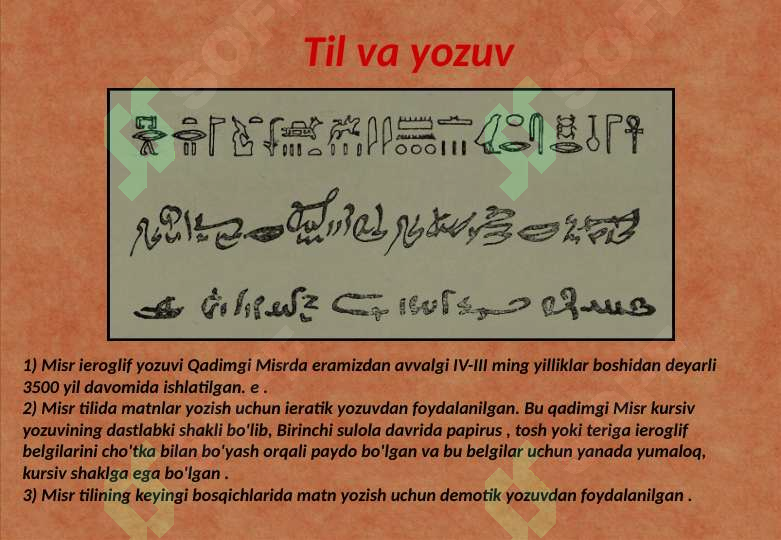 Til va yozuv
1) Misr ieroglif yozuvi Qadimgi Misrda eramizdan avvalgi IV-III ming yilliklar boshidan deyarli
3500 yil davomida ishlatilgan. e .
2) Misr tilida matnlar yozish uchun ieratik yozuvdan foydalanilgan. Bu qadimgi Misr kursiv
yozuvining dastlabki shakli bo'lib, Birinchi sulola davrida papirus , tosh yoki teriga ieroglif
belgilarini cho'tka bilan bo'yash orqali paydo bo'lgan va bu belgilar uchun yanada yumaloq,
kursiv shaklga ega bo'lgan .
3) Misr tilining keyingi bosqichlarida matn yozish uchun demotik yozuvdan foydalanilgan .